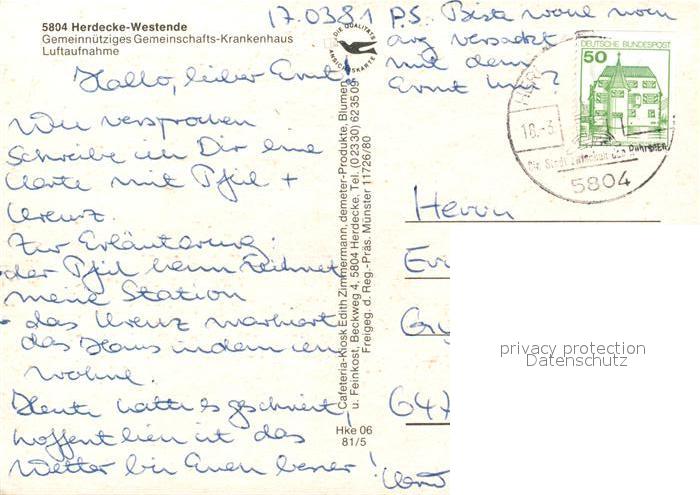 5804 Herdecke-Westende
Gemeinnütziges Gemeinschafts-Krankenhaus
Luftaufnahme
17.03.81
Hallo, lieber Ernst!
Wie versprochen
Schreibe ich Dir eine
Karte mit Pfeil +
Kreuz.
Zur Erläuterung:
- der Pfeil kennzeichnet
meine Station
- das Kreuz markiert
das Haus indem ich
wohne.
Heute hatte es geschneit,
hoffentlich ist das
Wetter bei Euch besser!
DIE QUALITÄTS
ANSICHTSKARTE
Cafeteria-Kiosk Edith Zimmermann, demeter-Produkte, Blumen
u. Feinkost, Beckweg 4, 5804 Herdecke, Tel. (02330) 623505
Freigeg. d. Reg.-Präs. Münster 11726/80
Hke 06
81/5
P.S. Biste wohl noch
arg versackt
mit dem
Ernst
DEUTSCHE BUNDESPOST
50
18.-3.
Die Stadt zwischen den
Ruhrseen
5804
Herrn
647
privacy protection
Datenschutz